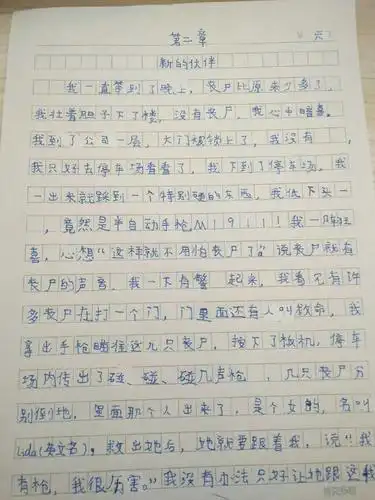 第二章
新的伙伴
我一直等到了晚上，丧尸比原来少多了，
我壮着胆子下了楼，没有丧尸，我心中暗喜。
我到了公司一层，大门被锁上了，我没有
我只好去停车场看看了，我下到了停车场。我
一出来就踩到一个特别硬的东西，我低下头一
，竟然是半自动手枪M1911！我一阵狂
喜，心想“这样就不用怕丧尸了”说丧尸就有
丧尸的声音，我一下有警起来，我看见有许
多丧尸在打一个门，门里面还有人叫救命，我
拿出手枪瞄准这几只丧尸，按下了板机，停车
场内传出了碰、碰、碰几声枪，几只丧尸分
别倒地，里面那个人出来了，是个女的，名叫
Lida(英文名)。救出她后，她就要跟着我，说“我
有枪，我很厉害。”我没有办法只好让她跟这我